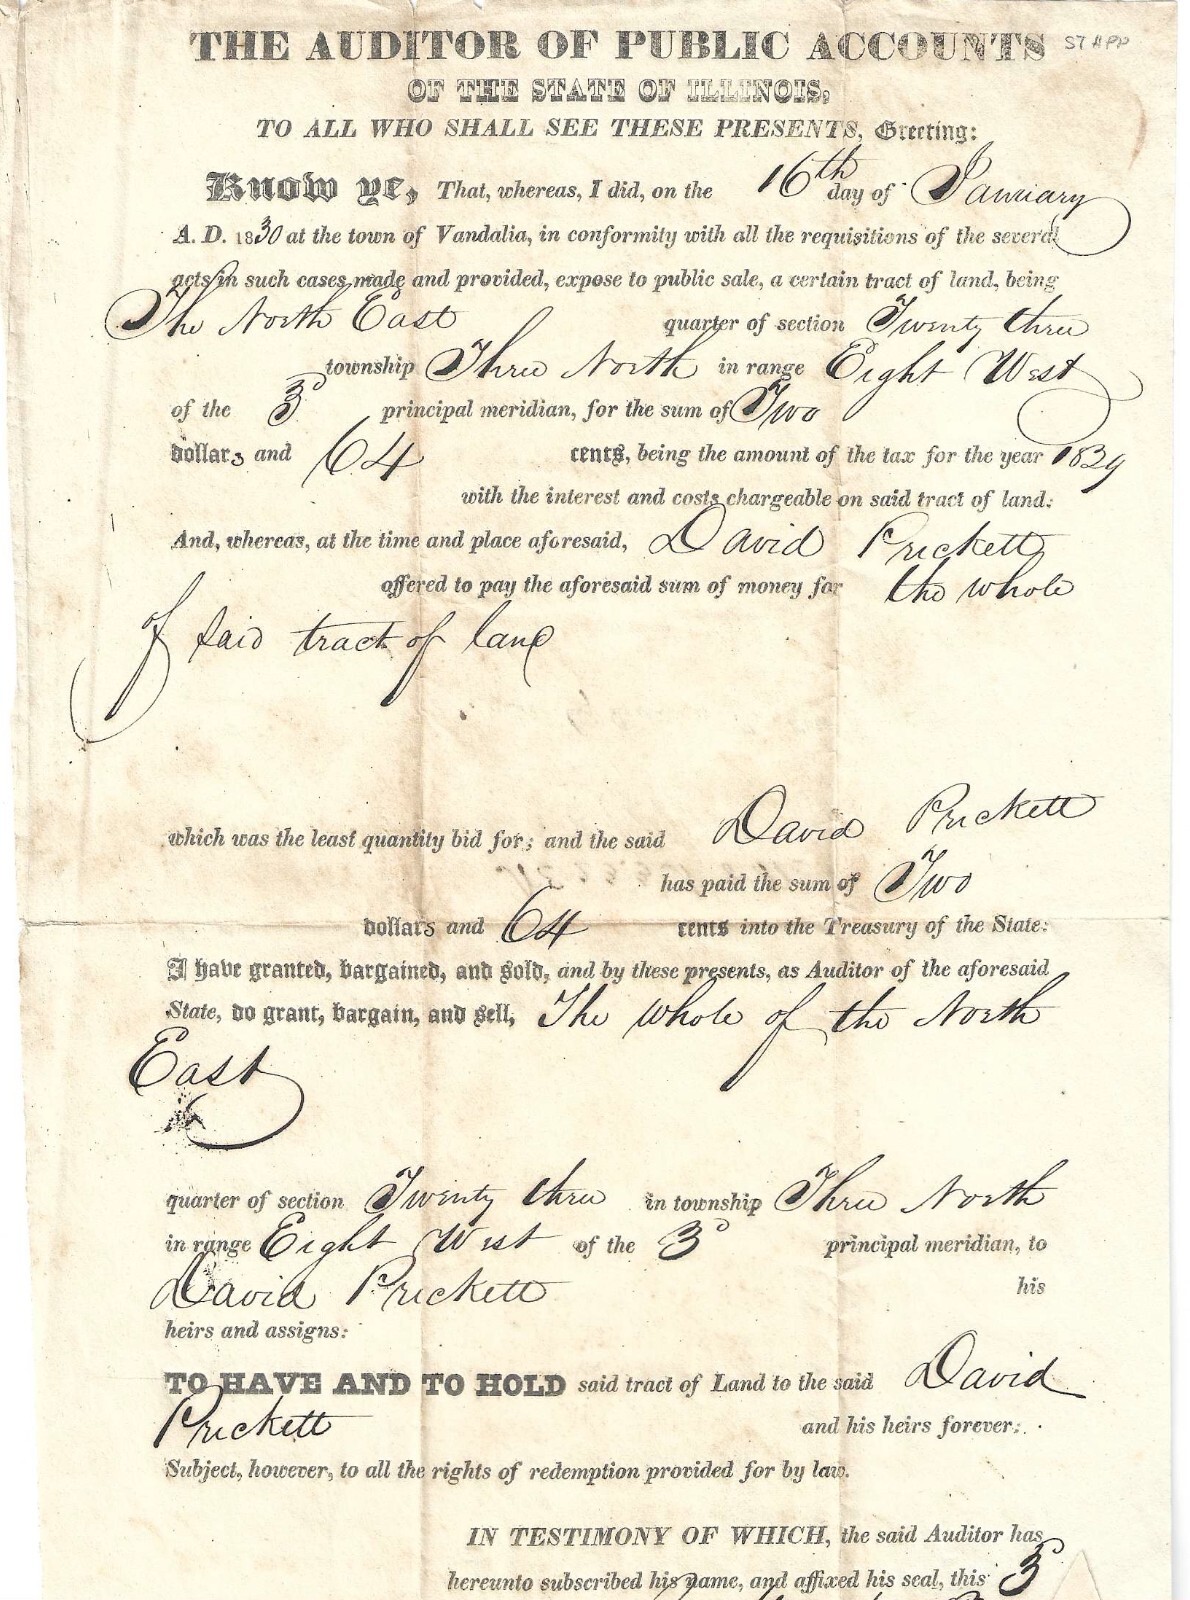 THE AUDITOR OF PUBLIC ACCOUNTS
OF THE STATE OF ILLINOIS,
TO ALL WHO SHALL SEE THESE PRESENTS, Greeting:
Know ye, That, whereas, I did, on the 16th day of January
A. D. 1830 at the town of Vandalia, in conformity with all the requisitions of the several
acts in such cases made and provided, expose to public sale, a certain tract of land, being
The North East quarter of section Twenty three
township Three North in range Eight West
of the 3d principal meridian, for the sum of Two
dollars and 64 cents, being the amount of the tax for the year 1829
with the interest and costs chargeable on said tract of land:
And, whereas, at the time and place aforesaid, David Prickett
offered to pay the aforesaid sum of money for the whole
of said tract of land
which was the least quantity bid for; and the said David Prickett
has paid the sum of Two
dollars and 64 cents into the Treasury of the State:
I have granted, bargained, and sold, and by these presents, as Auditor of the aforesaid
State, do grant, bargain, and sell, The whole of the North
East
quarter of section Twenty three in township Three North
in range Eight West of the 3d principal meridian, to
David Prickett his
heirs and assigns:
TO HAVE AND TO HOLD said tract of Land to the said David
Prickett and his heirs forever:
Subject, however, to all the rights of redemption provided for by law.
IN TESTIMONY OF WHICH, the said Auditor has
hereunto subscribed his name, and affixed his seal, this 3d